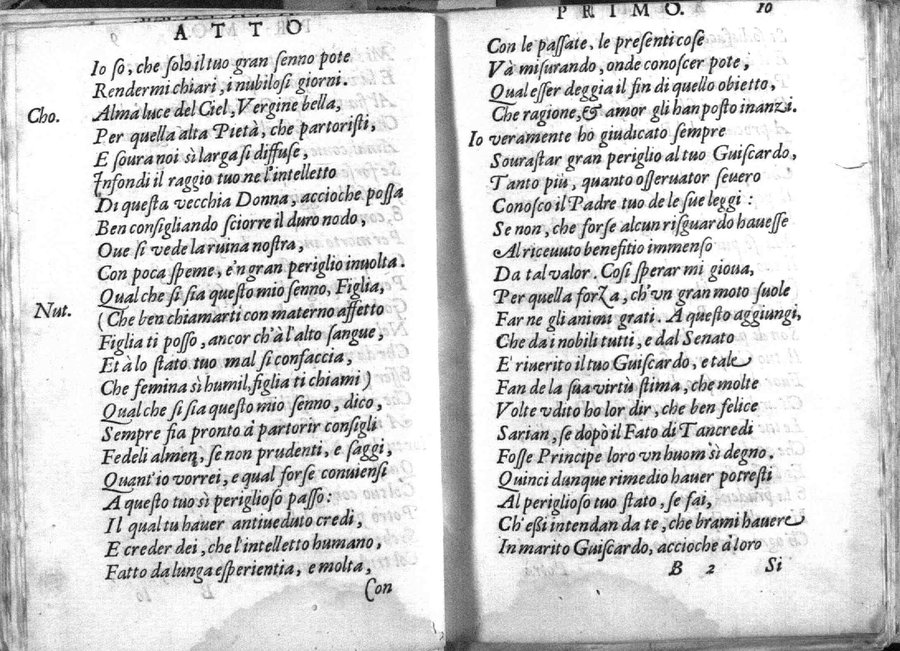 ATTO
Io so, che solo il tuo gran senno pote
Rendermi chiari, i nubilosi giorni.
Cho. Alma luce del Ciel, Vergine bella,
Per quella alta Pietà, che partoristi,
E soura noi sì larga si diffuse,
Infondi il raggio tuo ne l'intelletto
Di questa vecchia Donna, accioche possa
Ben consigliando sciorre il duro nodo,
Oue si vede la ruina nostra,
Con poca speme, e'n gran periglio inuolta.
Nut. Qual che si sia questo mio senno, Figlia,
(Che ben chiamarti con materno affetto
Figlia ti posso, ancor ch'à l'alto sangue,
Et à lo stato tuo mal si confaccia,
Che femina sì humil, figlia ti chiami)
Qual che si sia questo mio senno, dico,
Sempre fia pronto à partorir consigli
Fedeli almen, se non prudenti, e saggi,
Quant'io vorrei, e qual forse conuiensi
A questo tuo sì periglioso passo:
Il qual tu hauer antiueduto credi,
E creder dei, che l'intelletto humano,
Fatto da lunga esperientia, e molta,
Con
PRIMO. 10
Con le passate, le presenti cose
Và misurando, onde conoscer pote,
Qual esser deggia il fin di quello obietto,
Che ragione, & amor gli han posto inanzi.
Io veramente hò giudicato sempre
Sourastar gran periglio al tuo Guiscardo,
Tanto più, quanto osseruator seuero
Conosco il Padre tuo de le sue leggi:
Se non, che forse alcun risguardo hauesse
Al riceuuto benefitio immenso
Da tal valor. Così sperar mi gioua,
Per quella forza, ch'vn gran moto suole
Far ne gli animi grati. A questo aggiungi,
Che da i nobili tutti, e dal Senato
E' riuerito il tuo Guiscardo, e tale
Fan de la sua virtù stima, che molte
Volte vdito ho lor dir, che ben felice
Sarian, se dopò il Fato di Tancredi
Fosse Principe loro vn huom sì degno,
Quinci dunque rimedio hauer potresti
Al periglioso tuo stato, se fai,
Ch'essi intendan da te, che brami hauere
In marito Guiscardo, accioche à loro
B 2 Si